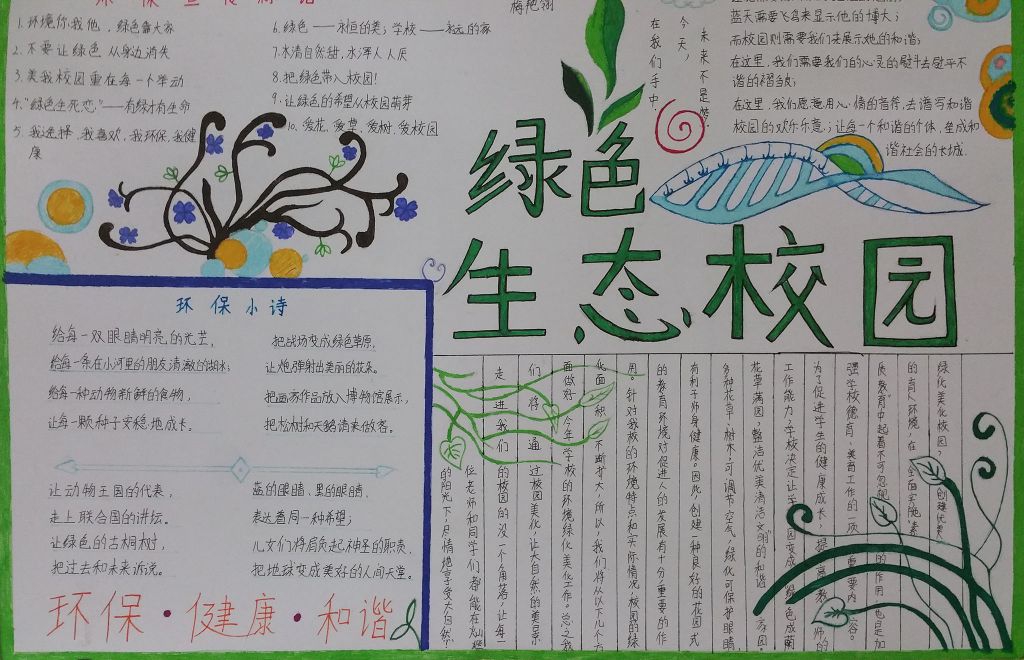 环保宣传标语
1. 环境你我他，绿色靠大家
2. 不要让绿色从身边消失
3. 美我校园重在每一个举动
4. "绿色生死恋"——有绿才有生命
5. 我选择，我喜欢，我环保，我健康
6. 绿色——永恒的美；学校——永远的家
7. 水清自然甜，水浑人人厌
8. 把绿色带入校园！
9. 让绿色的希望从校园萌芽
10. 爱花，爱草，爱树，爱校园
梅艳翎
未来不是梦，
今天，
在我们手中，
蓝天需要飞鸟来显示他的博大；
而校园则需要我们去展示她的和谐；
在这里，我们需要我们的心灵的熨斗去熨平不
谐的褶皱；
在这里，我们愿意用心情的音符，去谱写和谐
校园的欢乐乐意；让每一个和谐的个体，垒成和
谐社会的长城.
绿色
生态校园
环保小诗
给每一双眼睛明亮的光芒，
给每一条在小河里的朋友清澈的湖水；
给每一种动物新鲜的食物，
让每一颗种子安稳地成长。
把战场变成绿色草原，
让炮弹射出美丽的花朵。
把画家作品放入博物馆展示，
把松树和天鹅请来做客。
让动物王国的代表，
走上联合国的讲坛。
让绿色的古桐树，
把过去和未来诉说。
蓝的眼睛、黑的眼睛，
表达着同一种希望；
儿女们将肩负起神圣的职责，
把地球变成美好的人间天堂。
环保·健康·和谐
绿化美化校园，创建优美
的育人环境，在全面实施素
质教育中起着不可忽视的作用，也是加
强学校德育、美育工作的一项重要内容。
为了促进学生的健康成长，提高教师的
工作能力，学校决定让学校变成绿色成荫
花草满园，整洁优美清洁文明的和谐家园。
多种花草、树木，可调节空气，绿化可保护眼睛，
有利于师身健康。因此，创建一种良好的花园式
的教育环境对促进人的发展有十分重要的作
用。针对我校的环境特点和实际情况，校园的绿
化面积不断扩大，所以，我们将从以下几个方
面做好今年学校的环境绿化美化工作。总之我
们将通过校园美化，让大自然的美景
走进我们的校园的没一个角落，让每一
位老师和同学们都能在灿烂
的阳光下，尽情地享受大自然！